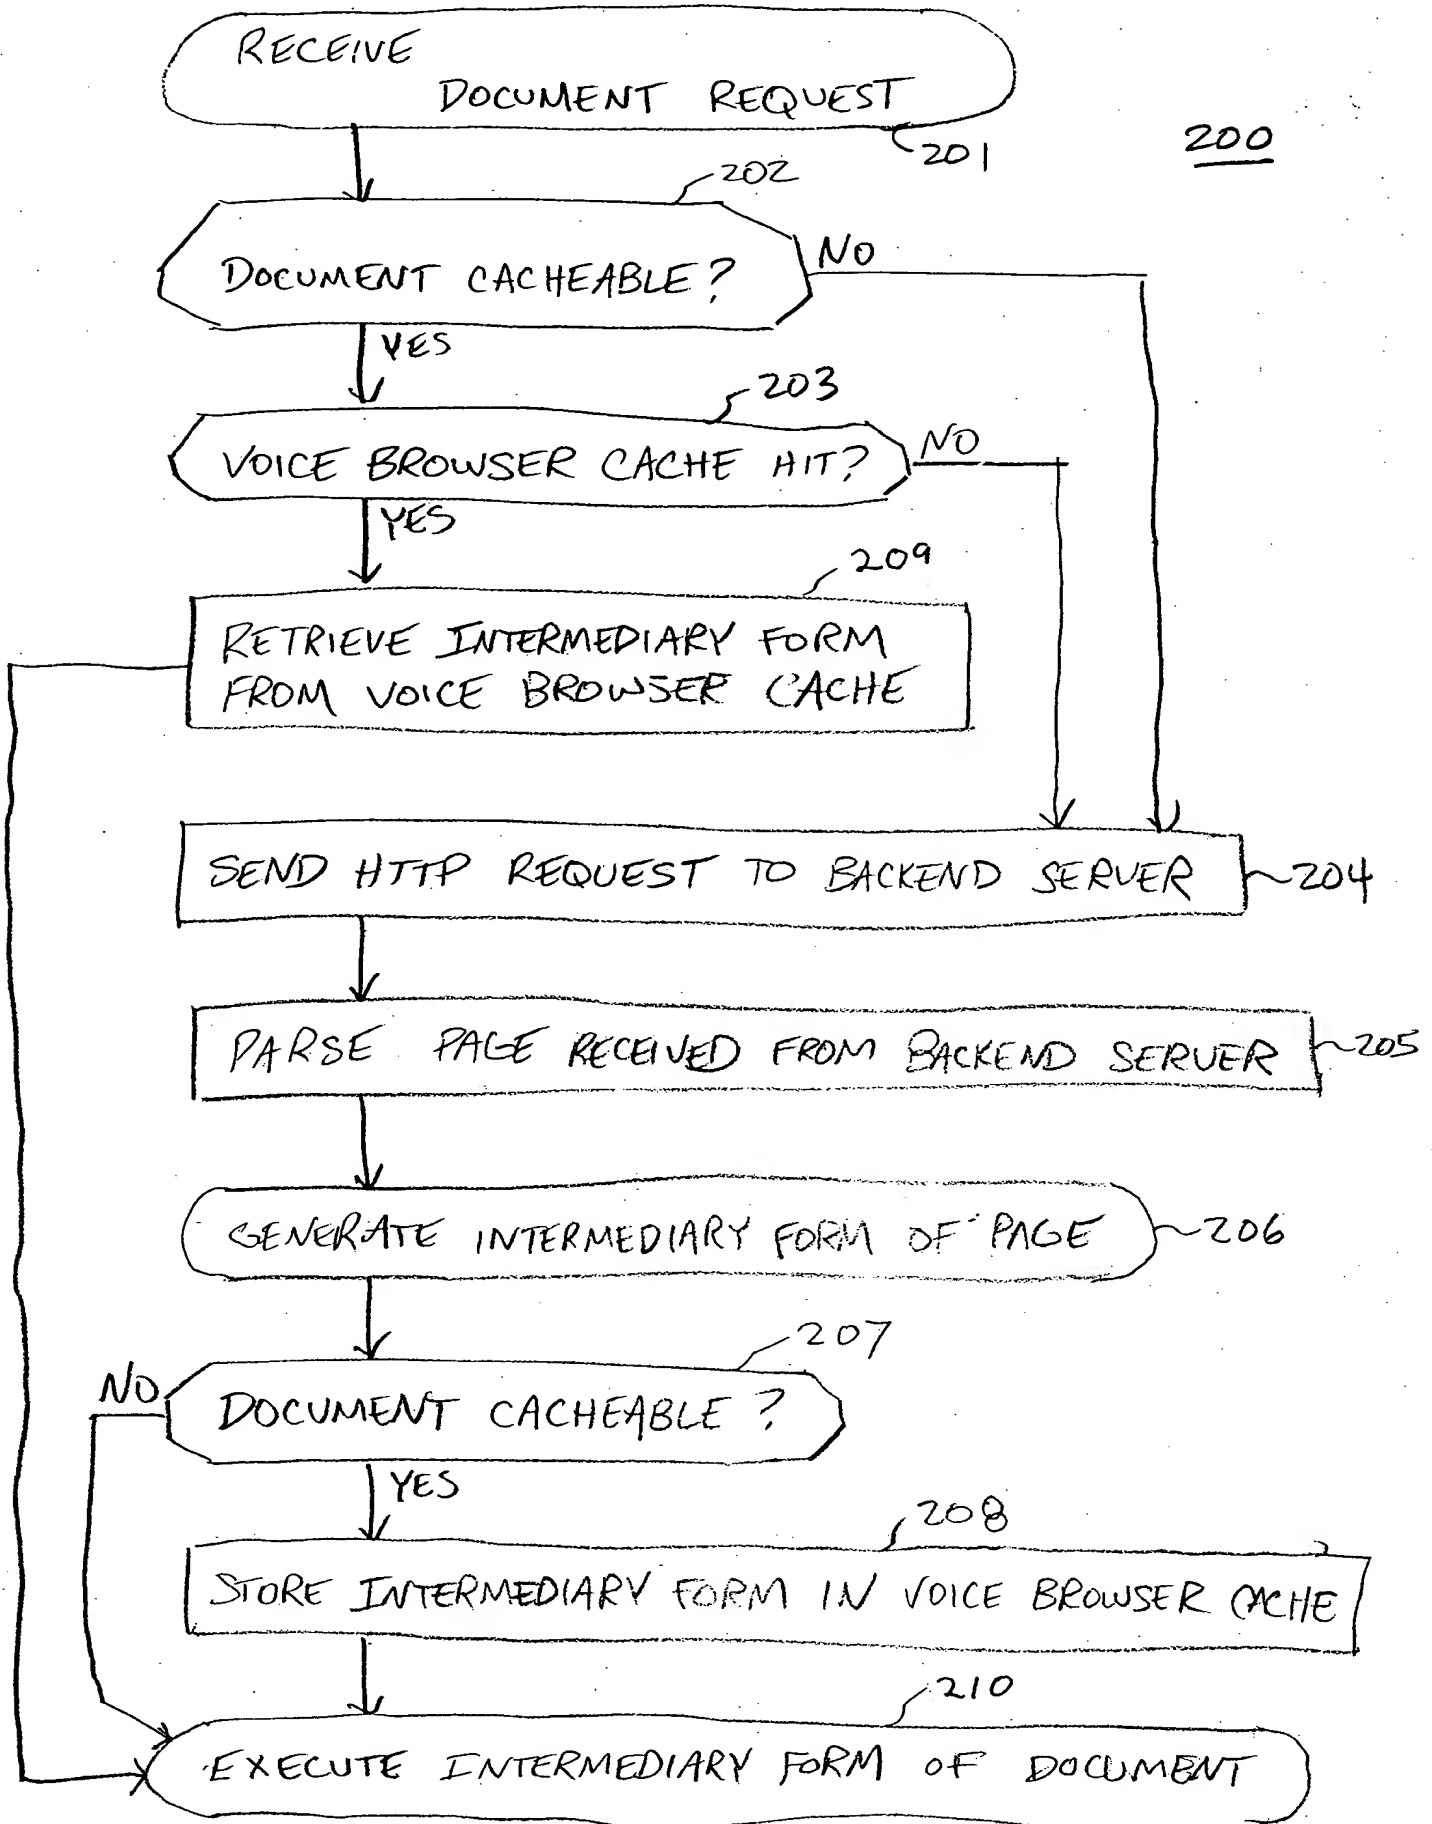 RECEIVE
DOCUMENT REQUEST
201
200
202
DOCUMENT CACHEABLE?
NO
YES
203
VOICE BROWSER CACHE HIT?
NO
YES
209
RETRIEVE INTERMEDIARY FORM
FROM VOICE BROWSER CACHE
SEND HTTP REQUEST TO BACKEND SERVER
204
PARSE PAGE RECEIVED FROM BACKEND SERVER
205
GENERATE INTERMEDIARY FORM OF PAGE
206
207
NO
DOCUMENT CACHEABLE ?
YES
208
STORE INTERMEDIARY FORM IN VOICE BROWSER CACHE
210
EXECUTE INTERMEDIARY FORM OF DOCUMENT